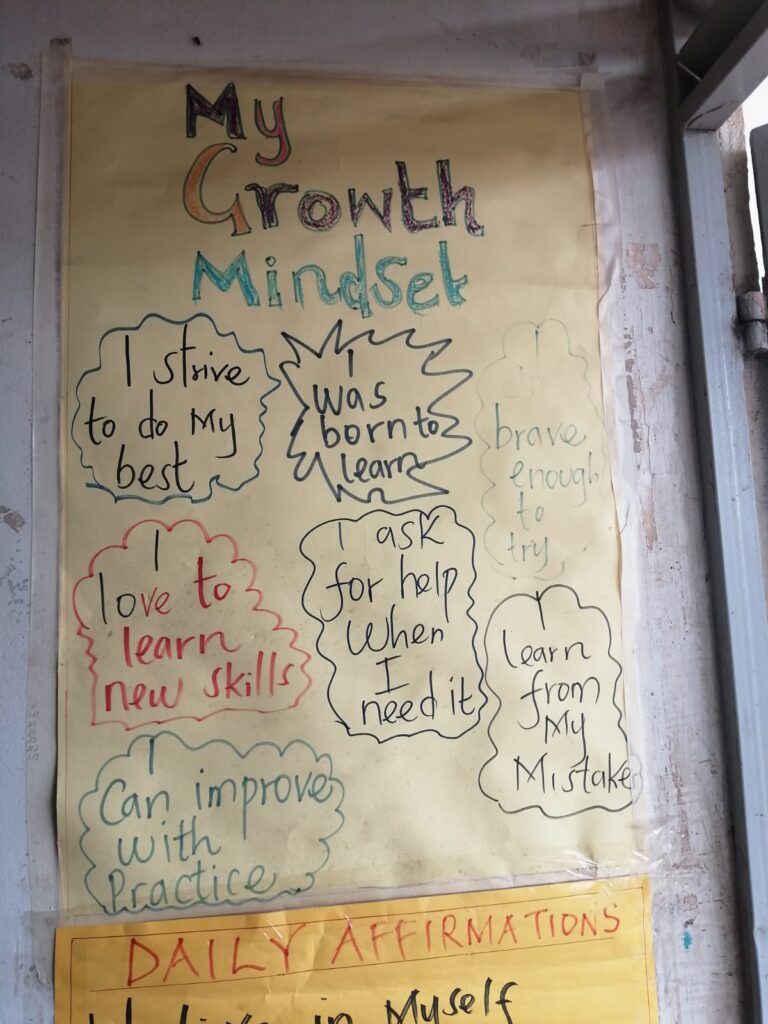 My
Growth
Mindset
I strive
to do My
best
I
was
born to
learn
I
brave
enough
to
try
I
love to
learn
new skills
I ask
for help
When
I
need it
I
learn
from
My
Mistake
I
Can improve
with
Practice
DAILY AFFIRMATIONS
in Myself